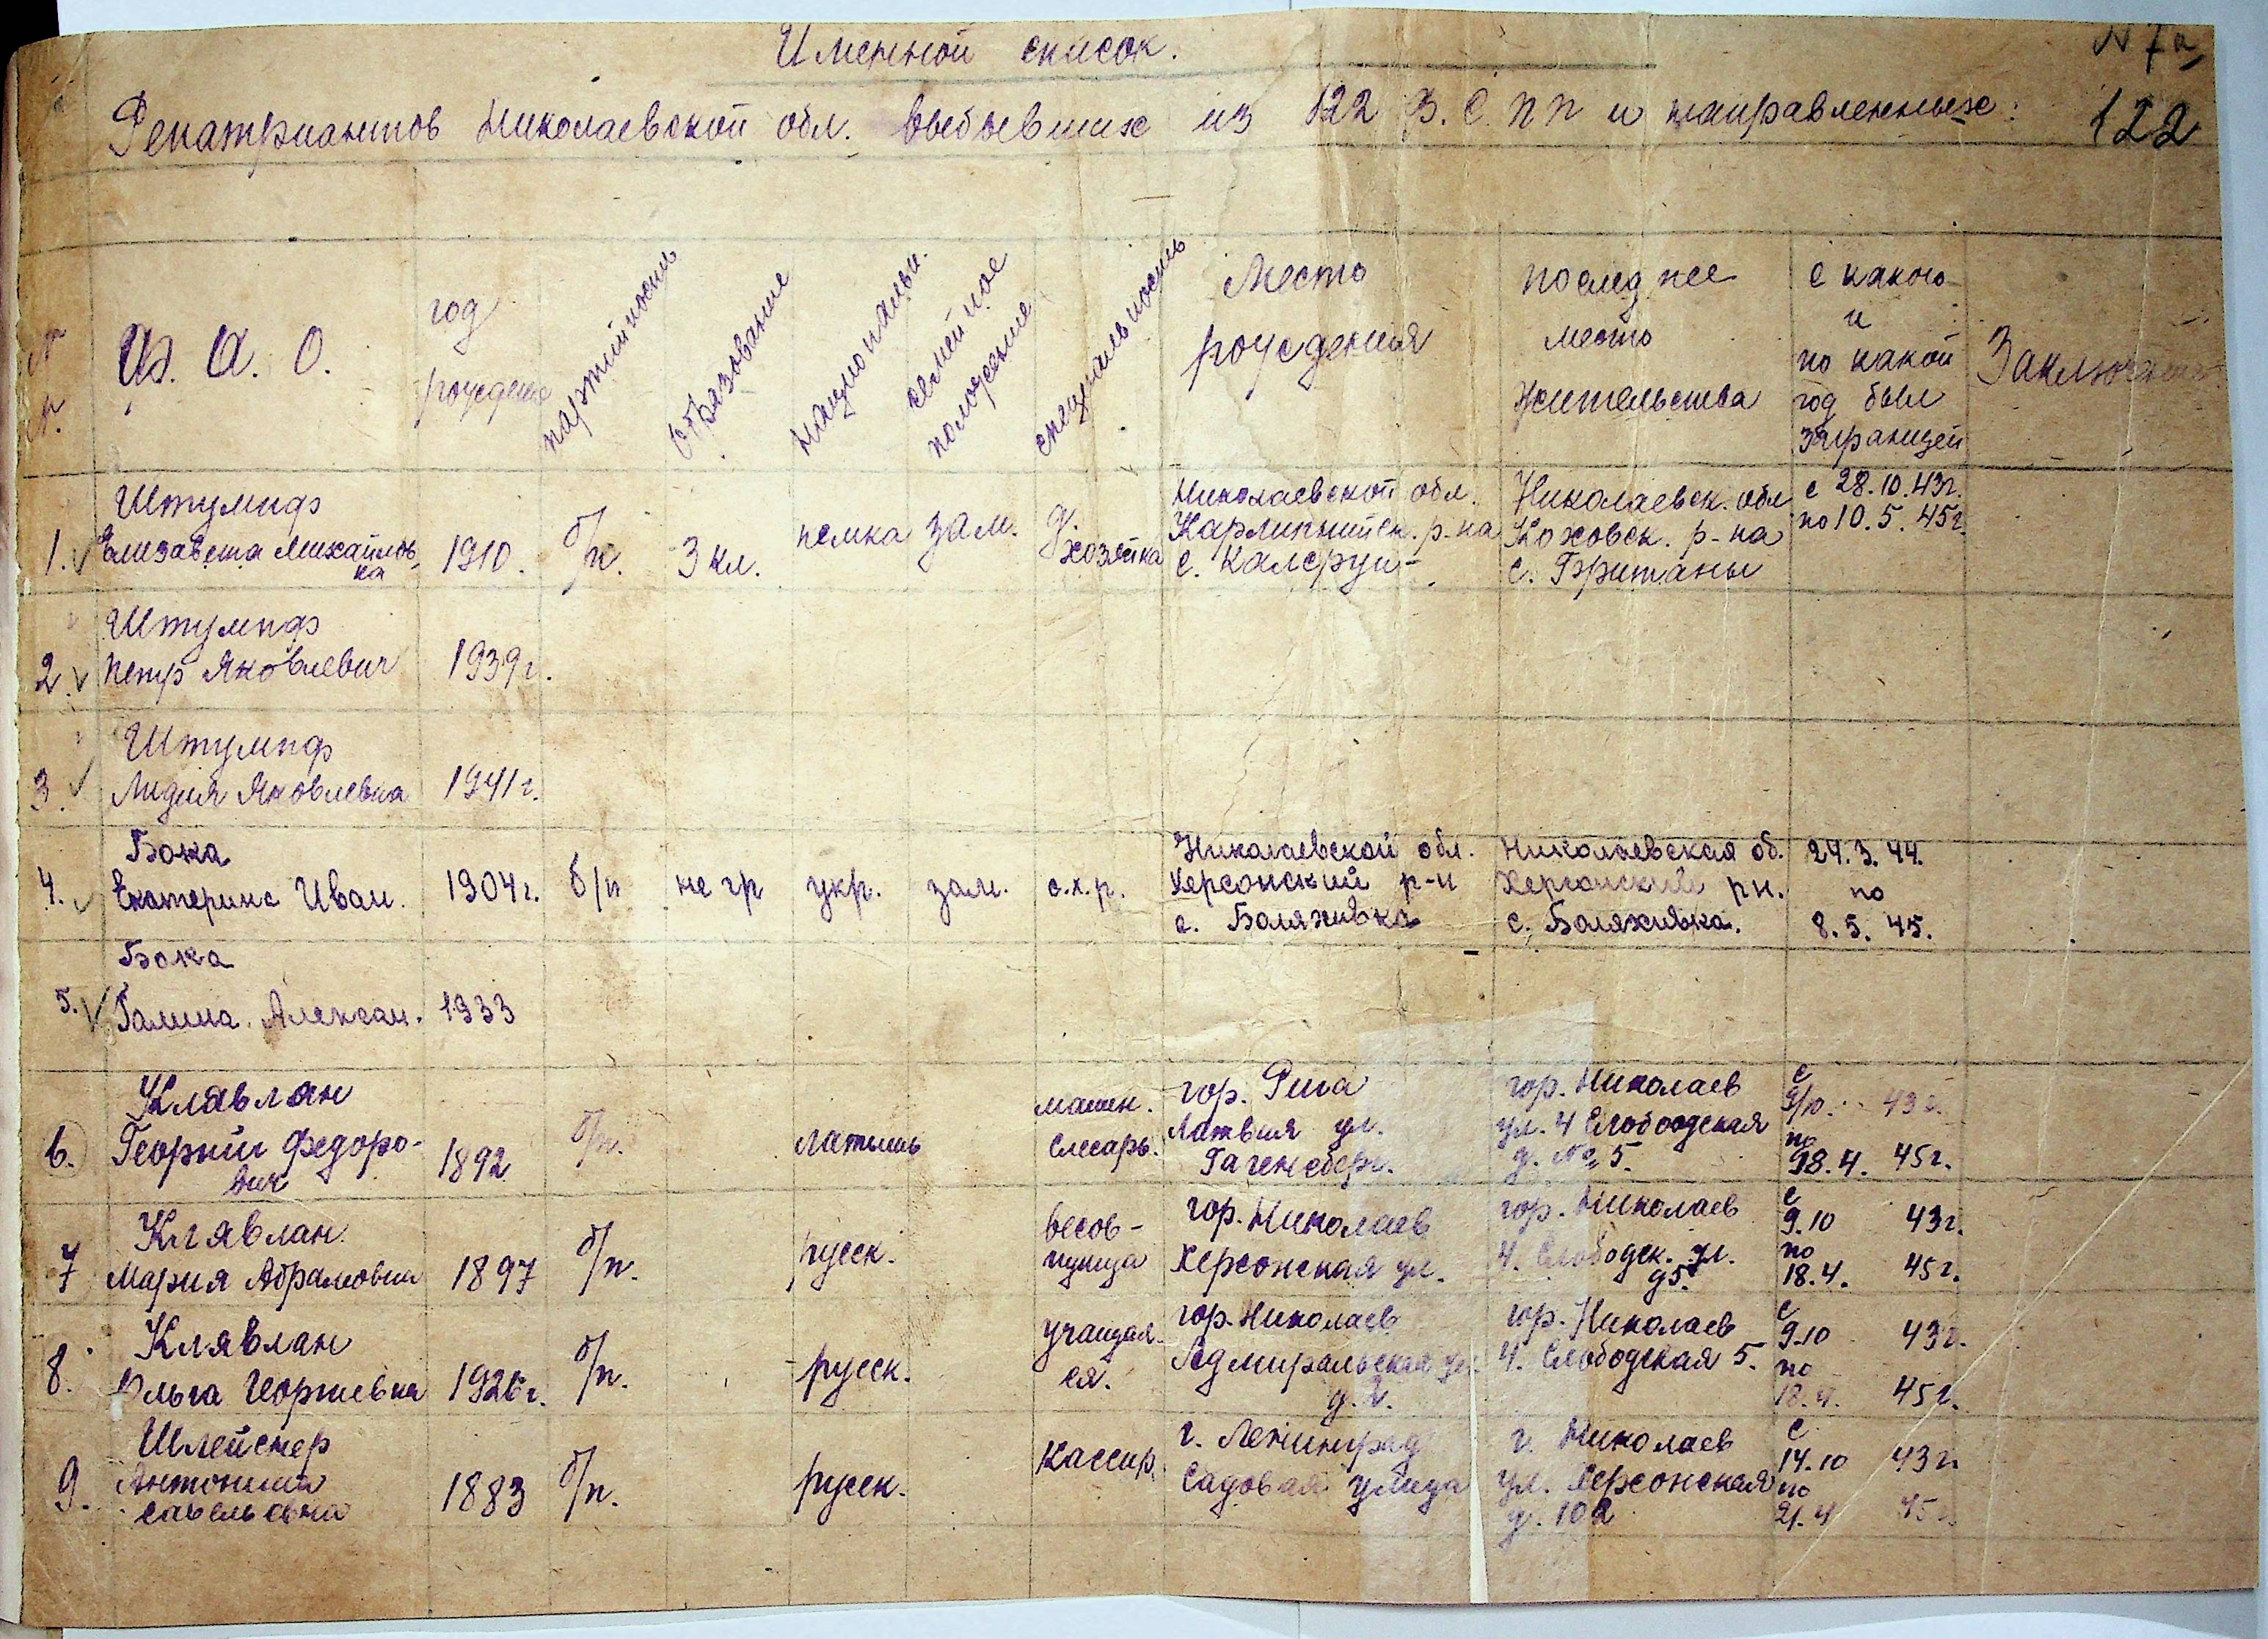 Именной список.
Репатриантов Николаевской обл. выбывших из 122 Ф. С. П П и направленных:
122
№
№
Ф. И. О.
год
рождения
партийность
образование
национальн.
семейное
положение
специальность
Место
рождения
последнее
место
жительства
с какого
и
по какой
год был
заграницей
Заключение
1.
Штумпф
Елизавета Михайлов-
на
1910.
б/п.
3 кл.
немка
зам.
д.
хозяйка
Николаевской обл.
Карлипнийск. р-на
с. Калсруи-
Николаевск. обл
Коховск. р-на
с. Британы
с 28.10.43г.
по 10.5.45г.
2.
Штумпф
Петр Яковлевич
1939г.
3.
Штумпф
Лидия Яковлевна
1941г.
4.
Бока
Екатерина Иван.
1904г.
б/п
не гр
укр.
зам.
с.х.р.
Николаевской обл.
Херсонский р-н
с. Боляживка
Николаевская об.
Херсонский рн.
с. Боляживка.
24.3.44.
по
8.5.45.
5.
Бока
Галина. Алексан.
1933
6.
Клявлан
Георгий Федоро-
вич
1892
б/п.
латыш
машин.
слесарь.
гор. Рига
Латвия ул.
Гагенсберг.
гор. Николаев
ул. 4 Слободская
д. № 5.
с
9/10. 43г.
по
18.4. 45г.
7
Клявлан
Мария Абрамовна
1897
б/п.
русск.
весов-
щица
гор. Николаев
Херсонская ул.
гор. Николаев
4. Слободск. ул.
д5.
с
9.10 43г.
по
18.4. 45г.
8.
Клявлан
Ольга Георгиевна
1926г.
б/п.
русск.
учащая-
ся.
гор. Николаев
Адмиральская ул.
гор. Николаев
4. Слободская 5.
с
9.10 43г.
по
18.4. 45г.
9.
Шлейснер
Антонина
Савельевна
1883
б/п.
русск.
Кассир.
г. Ленинград
Садовая улица
г. Николаев
ул. Херсонская
д. 102
с
14.10 43г.
по
21.4 45г.